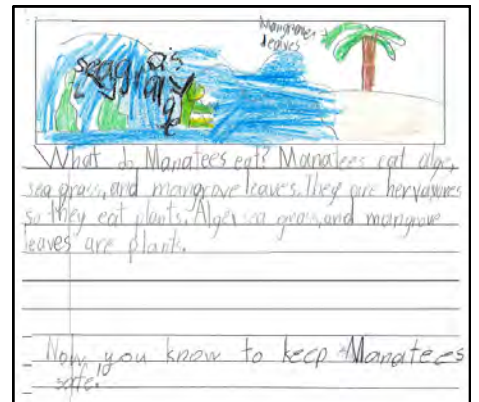 Mangroves
leaves
seagrass
What do Manatees eat? Manatees eat alge,
sea grass, and mangrove leaves. They are hervavores
so they eat plants. Alge, sea grass, and mangrove
leaves are plants.
Now you know to keep Manatees
safe!